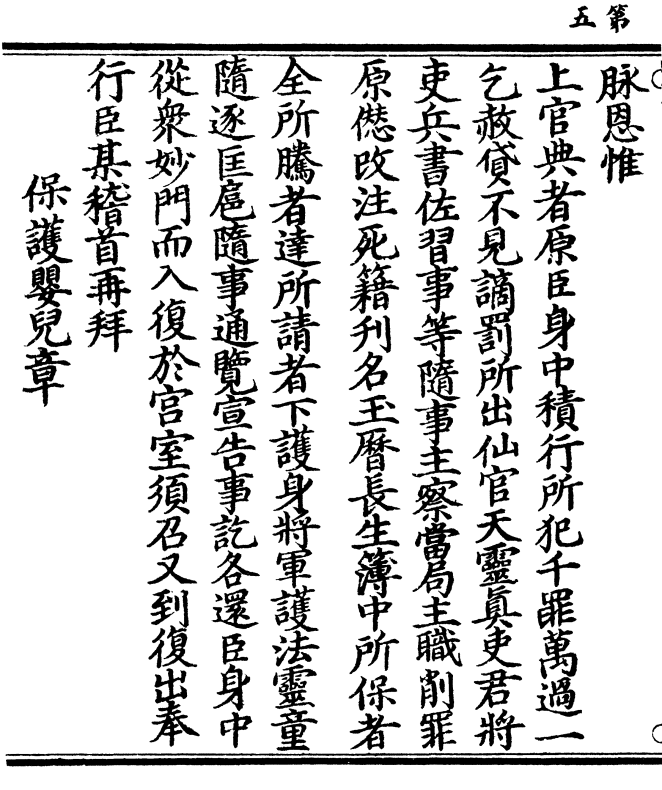 第五
脉恩惟
上官典者原臣身中積行所犯千罪萬過一
乞赦貸不見謫罰所出仙官天靈眞吏君將
吏兵書佐習事等隨事主察當局主職削罪
原愆改注死籍刋名玉曆長生簿中所保者
全所騰者達所請者下護身將軍護法靈童
隨逐匡扈隨事通覽宣告事訖各還臣身中
從衆妙門而入復於宫室須召又到復出奉
行臣某稽首再拜
保護嬰兒章